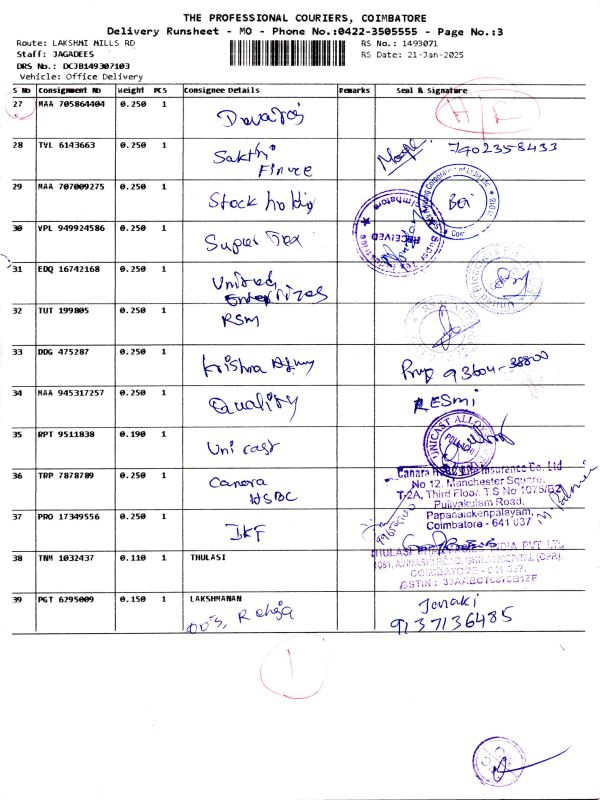 THE PROFESSIONAL COURIERS, COIMBATORE
Delivery Runsheet - MO - Phone No.:0422-3505555 - Page No.:3
Route: LAKSHMI MILLS RD
RS No.: 1493071
Staff: JAGADEES
RS Date: 21-Jan-2025
DRS No.: DCJB149307103
Vehicle: Office Delivery
S No Consignment No Weight PCS Consignee Details Remarks Seal & Signature
27 MAA 705864404 0.250 1
28 TVL 6143663 0.250 1 Sakthi 7402358433
Finance
29 MAA 707009275 0.250 1 Stock holdig
30 VPL 949924586 0.250 1 Super Tex
RECEIVED
31 EDQ 16742168 0.250 1 United
Enterprizes
32 TUT 199805 0.250 1 RSM
33 DDG 475287 0.250 1 Krishna Agency 93604-38800
34 MAA 945317257 0.250 1 Quality RESmi
35 RPT 9511838 0.190 1 Uni cast
UNICAST ALLOYS
36 TRP 7878789 0.250 1 Canara
HSBC
Canara HSBC Life Insurance Co. Ltd
No 12, Manchester Square,
T-2A, Third Floor, T.S No 1075/B2
Puliyakulam Road,
Papanaickenpalayam,
Coimbatore - 641 037
37 PRO 17349556 0.250 1 IKF
38 TNM 1032437 0.110 1 THULASI
39 PGT 6295009 0.150 1 LAKSHMANAN
Janaki
9137136485